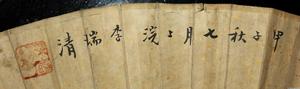 甲子秋七月上浣李瑞清